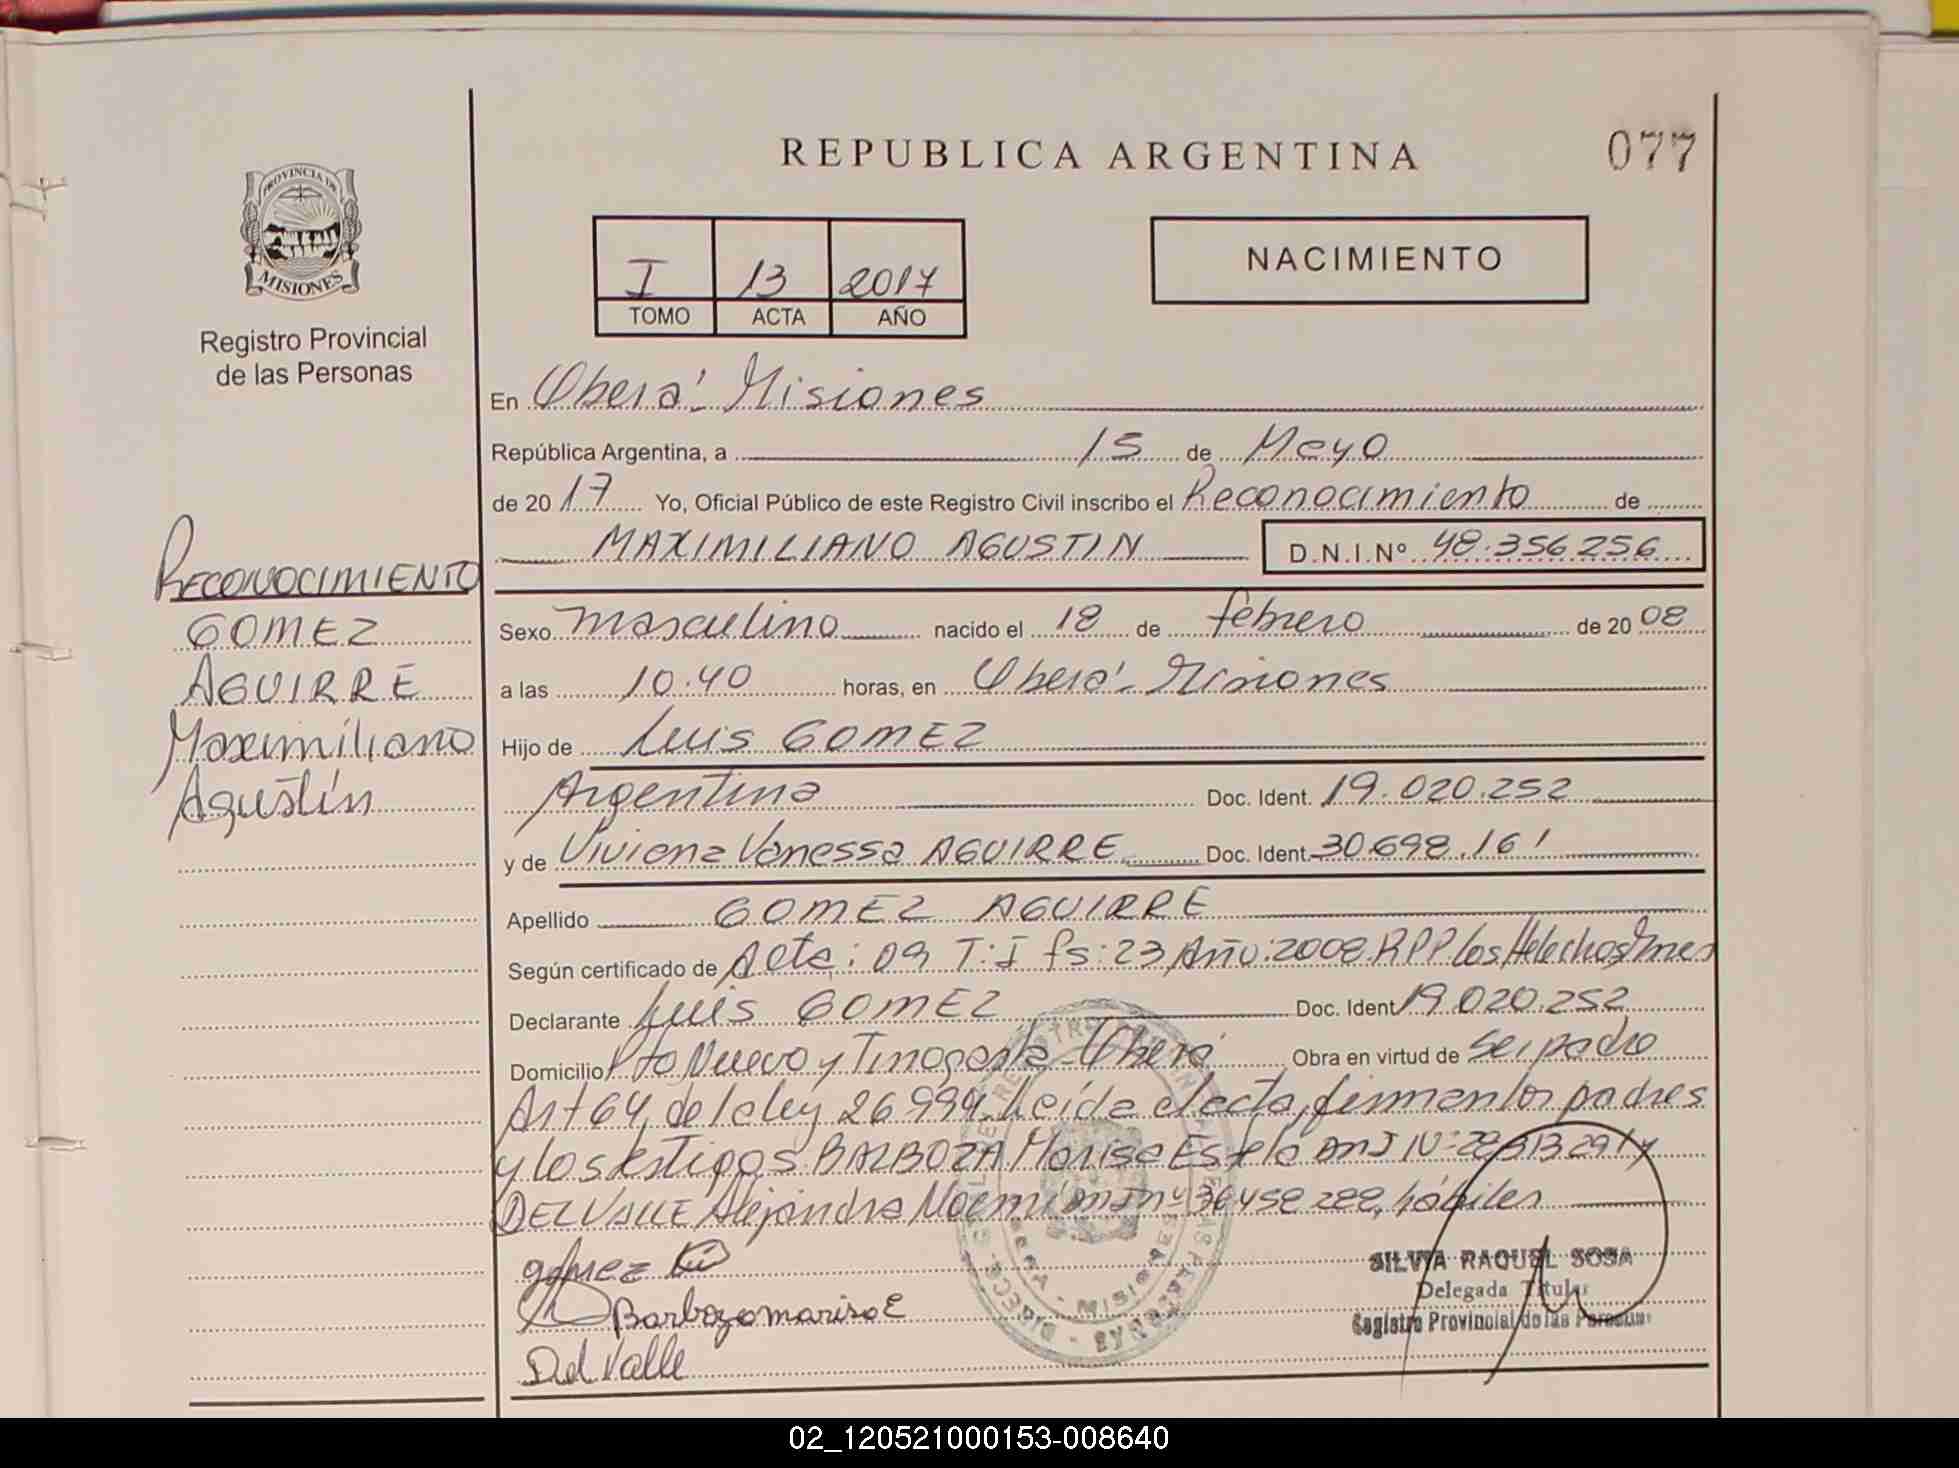 077
REPUBLICA ARGENTINA
PROVINCIA DE
MISIONES
Registro Provincial
de las Personas
I 13 2017
TOMO ACTA AÑO
NACIMIENTO
En Oberá - Misiones
República Argentina, a 15 de Mayo
de 20 17 Yo, Oficial Público de este Registro Civil inscribo el Reconocimiento de
MAXIMILIANO AGUSTIN D.N.I.Nº 48.356.256
RECONOCIMIENTO
GOMEZ
AGUIRRE
Maximiliano
Agustín
Sexo masculino nacido el 18 de febrero de 20 08
a las 10.40 horas, en Oberá - Misiones
Hijo de Luis GOMEZ
Argentina Doc. Ident. 19.020.252
y de Viviana Vanessa AGUIRRE Doc. Ident. 30.698.161
Apellido GOMEZ AGUIRRE
Según certificado de Acta: 09 T: I fs: 23 Año: 2008 RPP Los Helechos Mnes
Declarante Luis GOMEZ Doc. Ident 19.020.252
Domicilio Pto Nuevo y Tinogasta - Oberá Obra en virtud de ser padre
Art 64 de la ley 26.994. Leída el acta, firman los padres
y los testigos BARBOZA Marisa Estela DNI Nº 28313291 y
DEL VALLE Alejandra Noemí DNI nº 36458288, hábiles
gomez
Barboza marisa E
Del Valle
SILVIA RAQUEL SOSA
Delegada Titular
Registro Provincial de las Personas
02_120521000153-008640